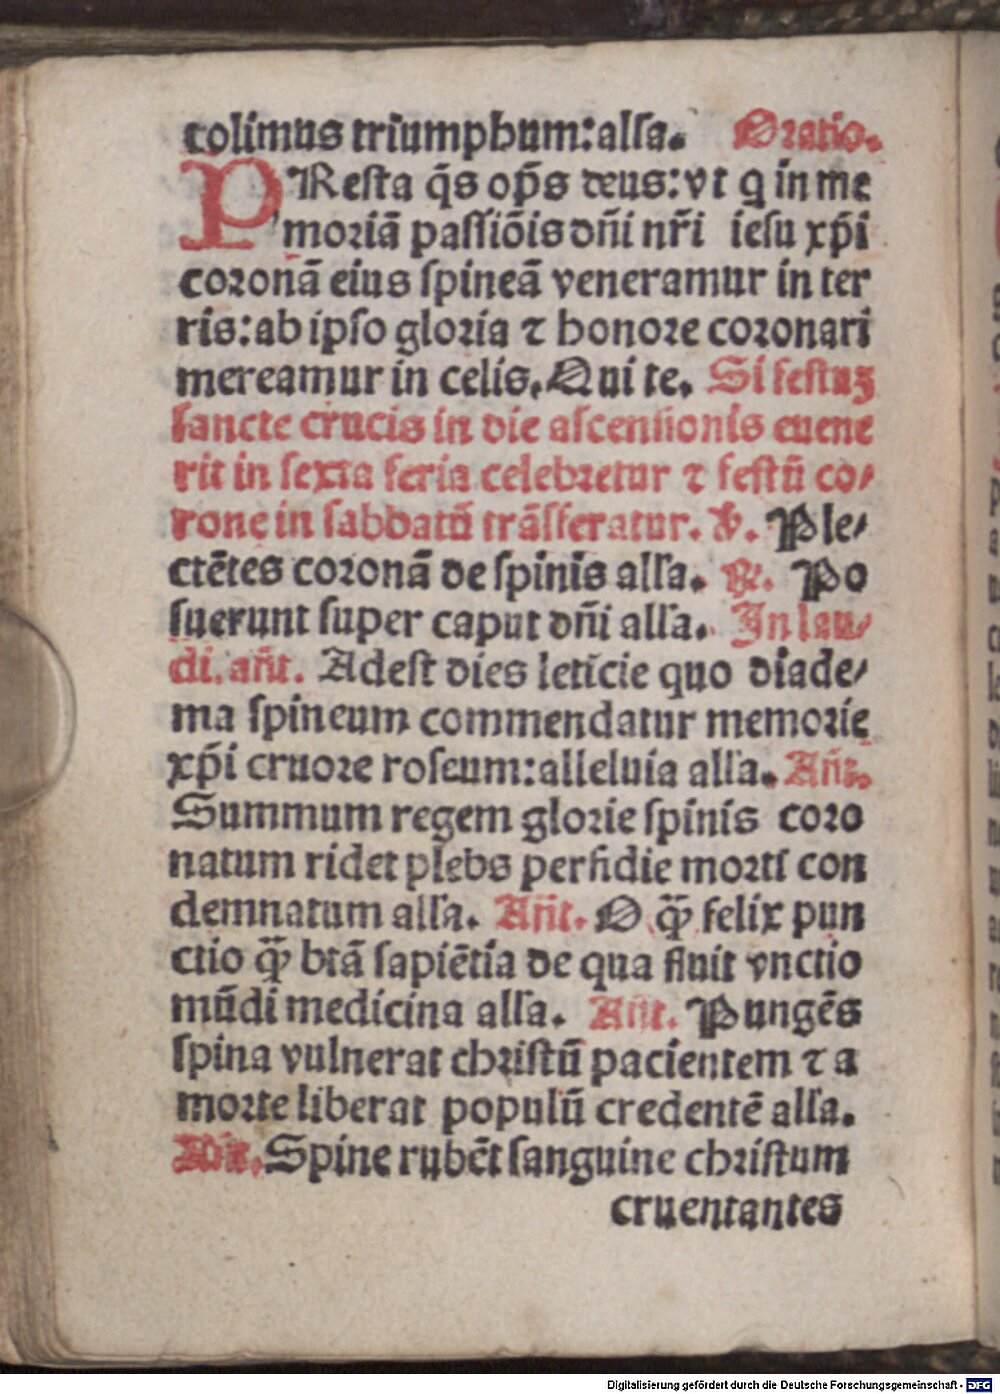 colimus triumphum: alľa. Oratio.
PResta q̄s op̄s deus: vt q in me
moriā passiōis dn̄i nr̄i iesu xp̄i
coronā eius spineā veneramur in ter
ris: ab ipso gloria ⁊ honore coronari
mereamur in celis. Qui te. Si festuꝫ
sancte crucis in die ascensionis euene
rit in sexta feria celebretur ⁊ festū co/
rone in sabbatū trāsferatur. ℣. Ple/
ctētes coronā de spinis alľa. ℟. Po
suerunt super caput dn̄i alľa. In lau/
di. an̄t. Adest dies leticie quo diade/
ma spineum commendatur memorie
xp̄i cruore roseum: alleluia alľa. An̄t.
Summum regem glorie spinis coro
natum ridet plebs perfidie morti con
demnatum alľa. An̄t. O q̄ꝫ felix pun
ctio q̄ꝫ btā sapiētia de qua fluit vnctio
mūdi medicina alľa. An̄t. Pungēs
spina vulnerat christū pacientem ⁊ a
morte liberat populū credentē alľa.
An̄t. Spine rubēt sanguine christum
cruentantes
Digitalisierung gefördert durch die Deutsche Forschungsgemeinschaft - DFG